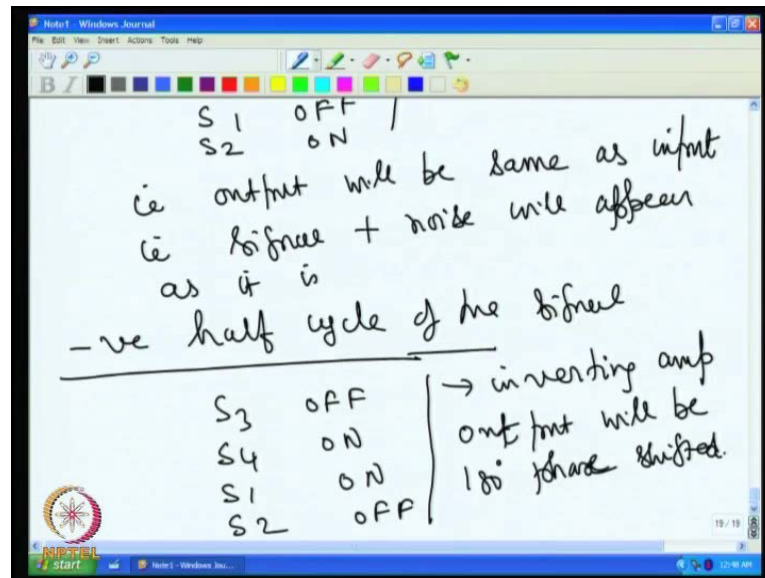 Note1 - Windows Journal
File Edit View Insert Actions Tools Help
B I
S1 OFF
S2 ON
ie output will be same as input
ie signal + noise will appear
as it is
-ve half cycle of the signal
S3 OFF → inverting amp
S4 ON output will be
S1 ON 180 phase shifted.
S2 OFF
19 / 19
NPTEL
start Note1 - Windows Jou... 12:48 AM